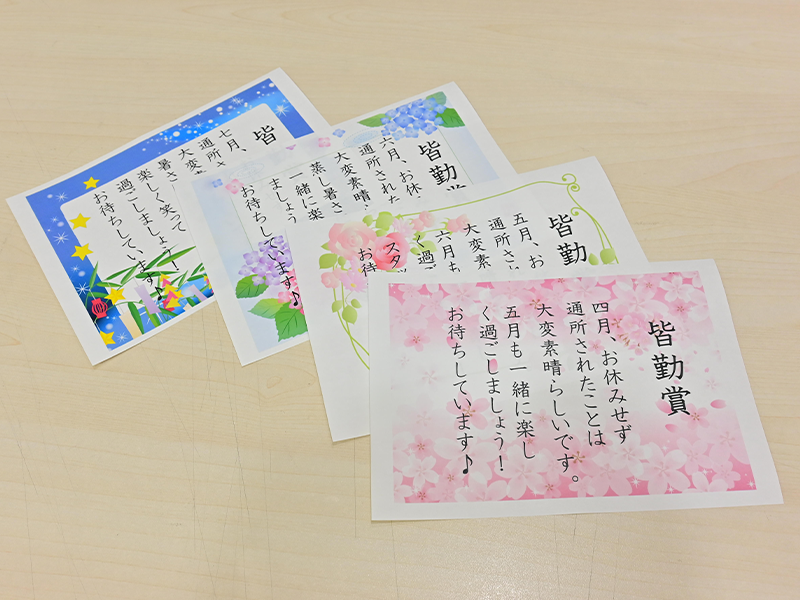 皆勤賞
四月、お休みせず
通所されたことは
大変素晴らしいです。
五月も一緒に楽し
く過ごしましょう！
お待ちしています♪
皆勤
五月、お
通所され
大変素
六月も
く過ご
スタ
お待
皆勤賞
六月、お休
通所された
大変素晴
蒸し暑さ
一緒に楽
ましょう
お待ちしています♪
皆
七月、
通所さ
大変素
暑さ
楽しく笑って
過ごしましょう！
お待ちしています♪